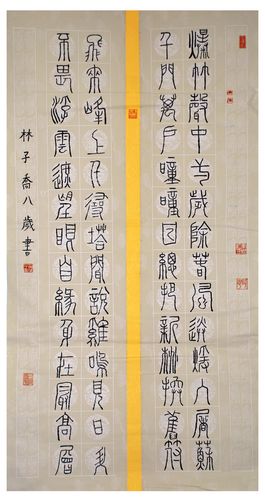 爆竹聲中一歲除春風送暖入屠蘇
千門萬戶曈曈日總把新桃換舊符
飛來峰上千尋塔聞說雞鳴見日升
不畏浮雲遮望眼自緣身在最高層
林子喬八歲書